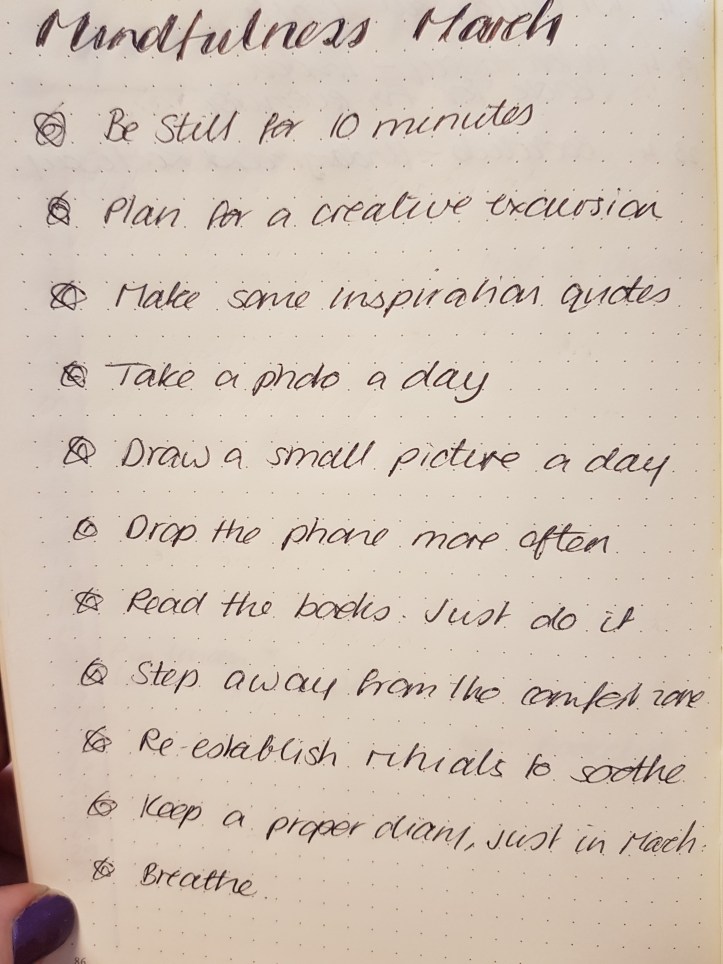 Mindfulness March
Be Still for 10 minutes
Plan for a creative excursion
Make some inspiration quotes
Take a photo a day
Draw a small picture a day
Drop the phone more often
Read the books. Just do it
Step away from the comfort zone
Re-establish rituals to soothe
Keep a proper diary, just in March.
Breathe
86